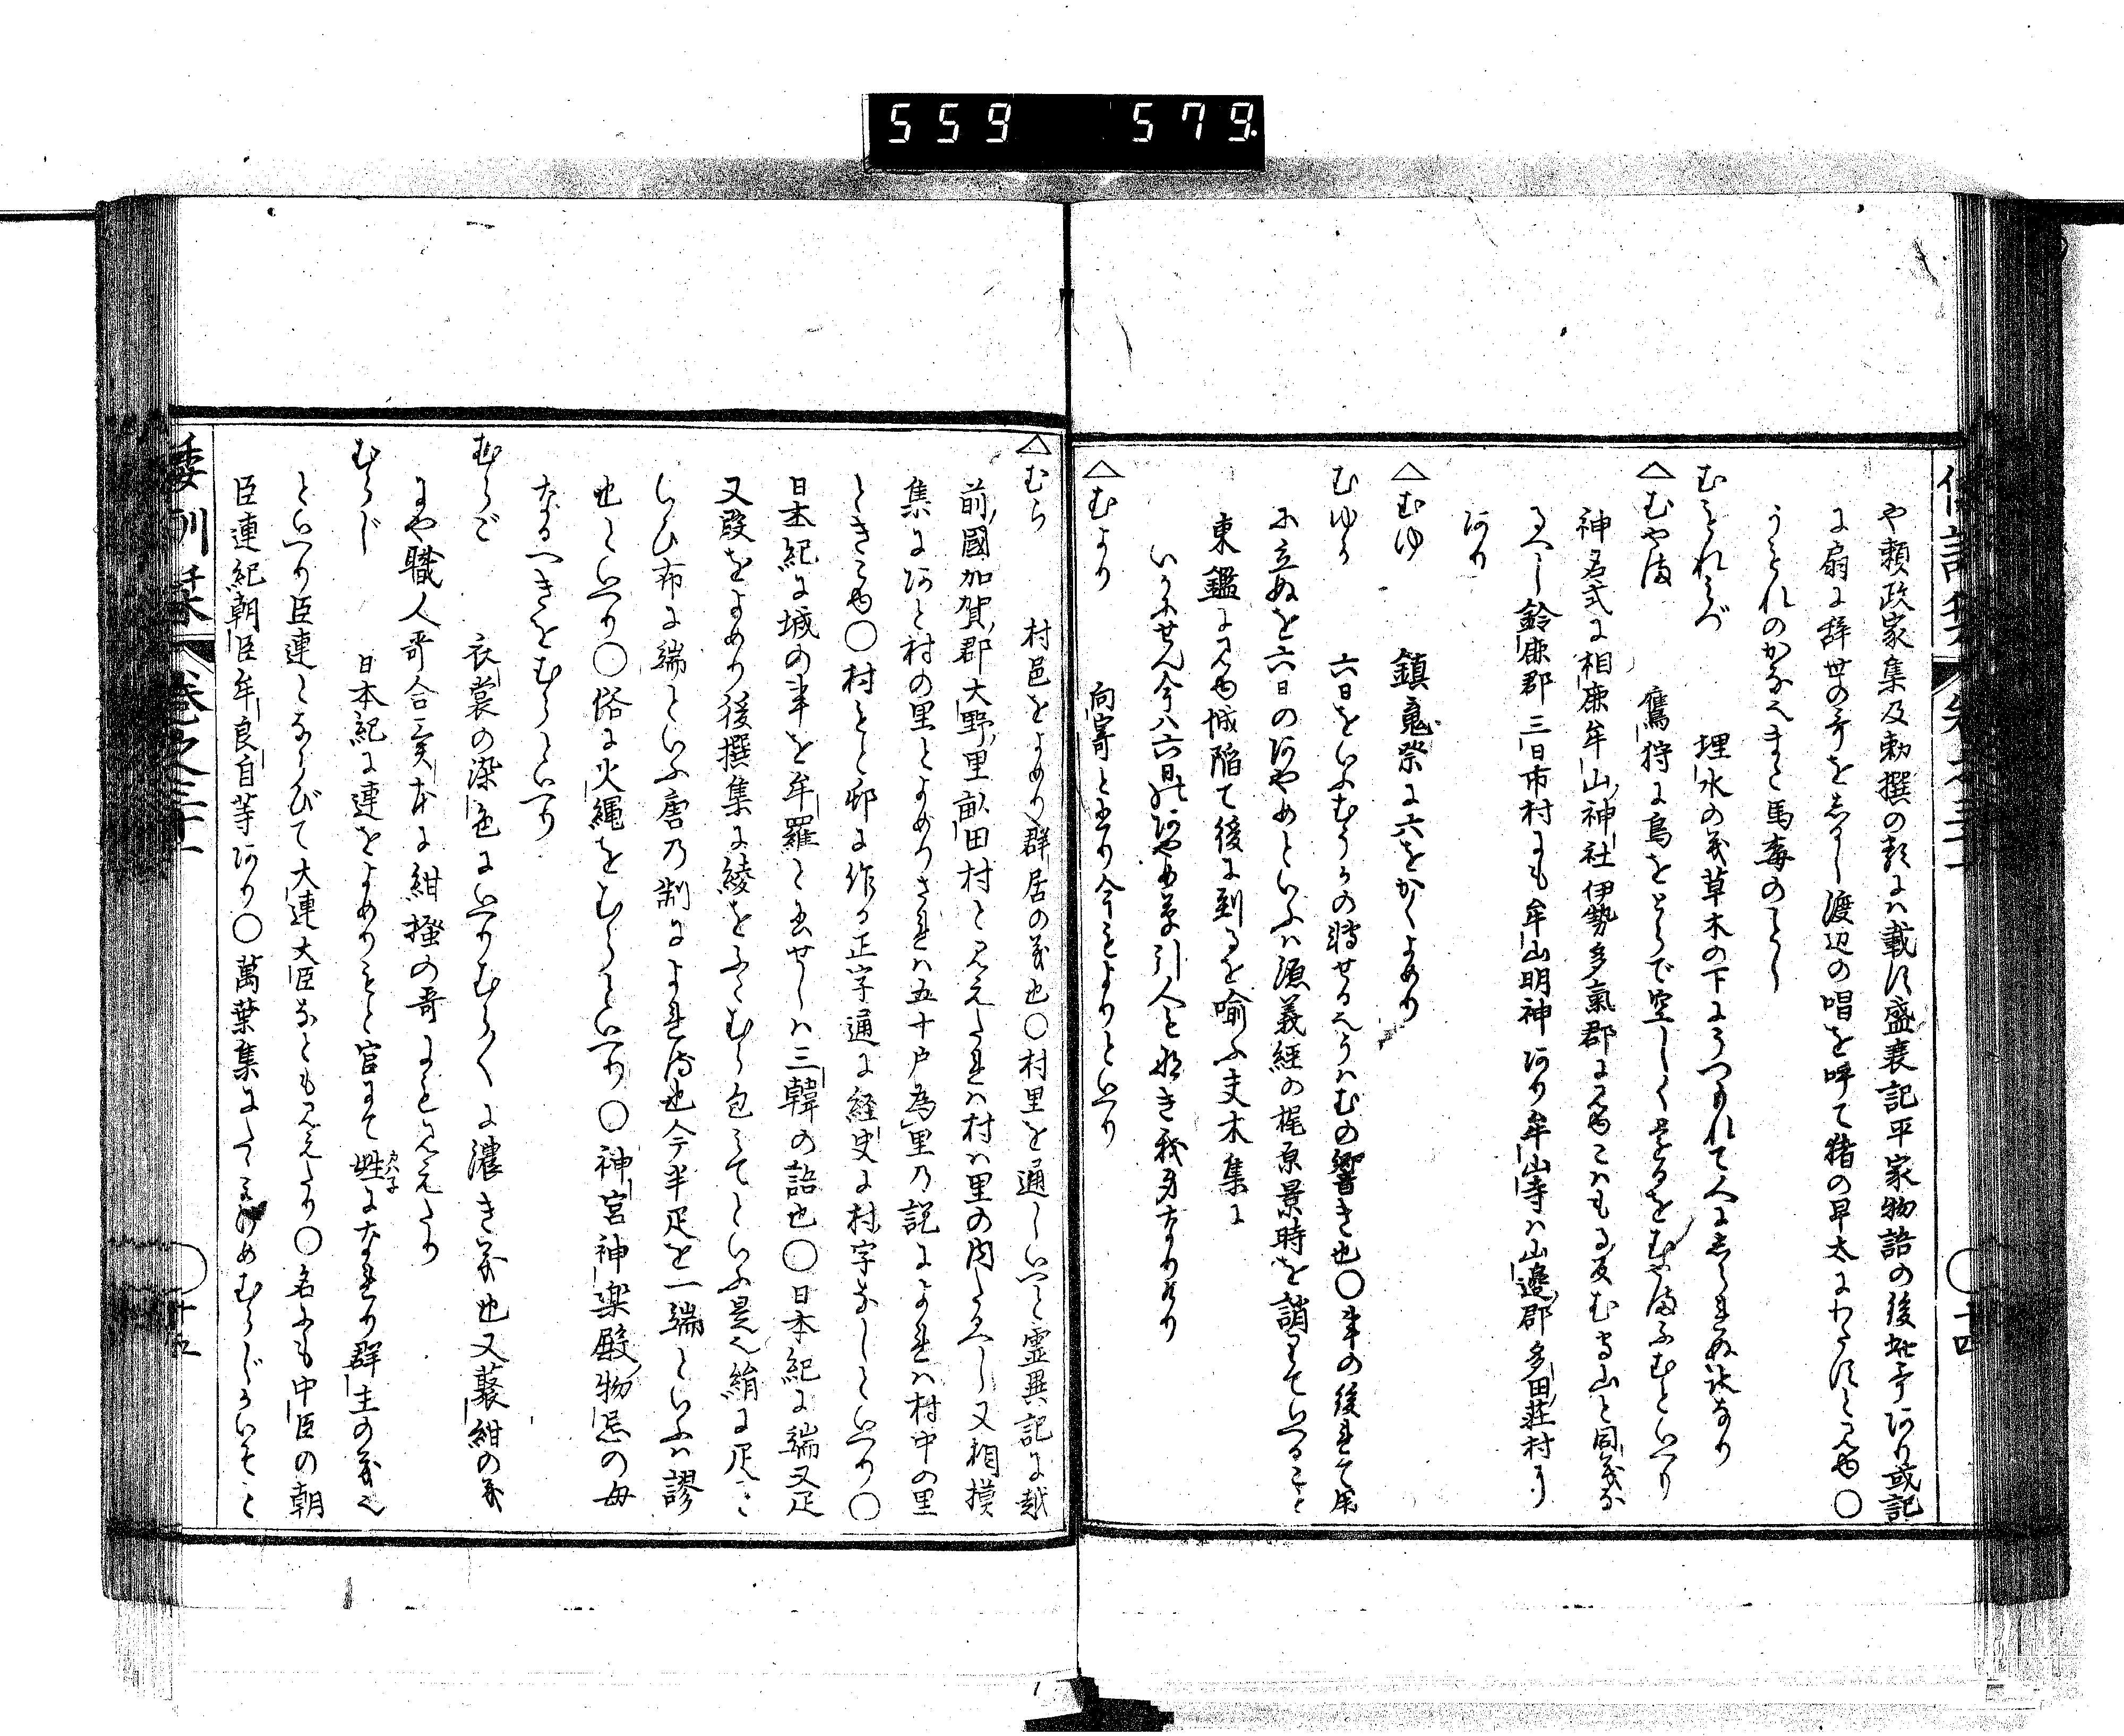 559 579
や頼政家集及勅撰の類には載す盛衰記平家物語の後此哥あり或記
に扇に辞世の哥をしるし渡辺の唱を呼て猪の早太にわたすと見ゆ○
うもれのかなへまと馬毒の
むもれみづ 埋水の義草木の下にうつもれて人にしられぬ水なり
△むやま 鷹狩に鳥をとらで空しくかへるをむやまふむといへり
神名式に相鹿牟山神社伊勢多氣郡に見ゆこはもる反む守山と同義な
るへし鈴鹿郡三日市村にも牟山明神あり牟山寺は山邉郡多田荘村に
あり
△むゆ 鎮魂祭に六をかくよめり
むゆか 六日をいふむうかの轉せるへうはむの響き也○事の後れて用
に立ぬを六日のあやめといふは源義経の梶原景時を誚りていへること
東鑑に見ゆ城陥て後に到るを喩ふ夫木集に
いかにせん今は六日のあやめ草引人もなき我身なりけり
△むより 向寄と書り今もよりといへり
△むら 村邑をよめり群居の義也○村里を通しいへと霊異記に越
前國加賀郡大野里畝田村と見えたれは村は里の内なるへし又相摸
集にあと村の里とよめりされは五十戸為里の説によれは村中の里
ときこゆ○村もと邨に作る正字通に経史に村字なしといへり○
日本紀に城の事を牟羅と書せしは三韓の語也○日本紀に端又疋
又段をよめり後撰集に綾をふたむら包みてといふ是也絹に疋と
いひ布に端といふ唐の制によれる也今半疋を一端といふは謬
也といへり○俗に火繩をむらといへり○神宮神楽殿物忌の毋
なるへきをむらといへり
むらご 衣裳の染色にいへりむら〱に濃き義也又叢紺の義
にや職人哥合三天本に紺掻の哥にも見えたり
むらじ 日本紀に連をよめりもと官にて姓カハ子になれり群主の義也
といへり臣連とならびて大連大臣なとも見えたり○名にも中臣の朝
臣連紀朝臣牟良自等あり○萬葉集に
倭訓栞 巻之三十一
十四
十五